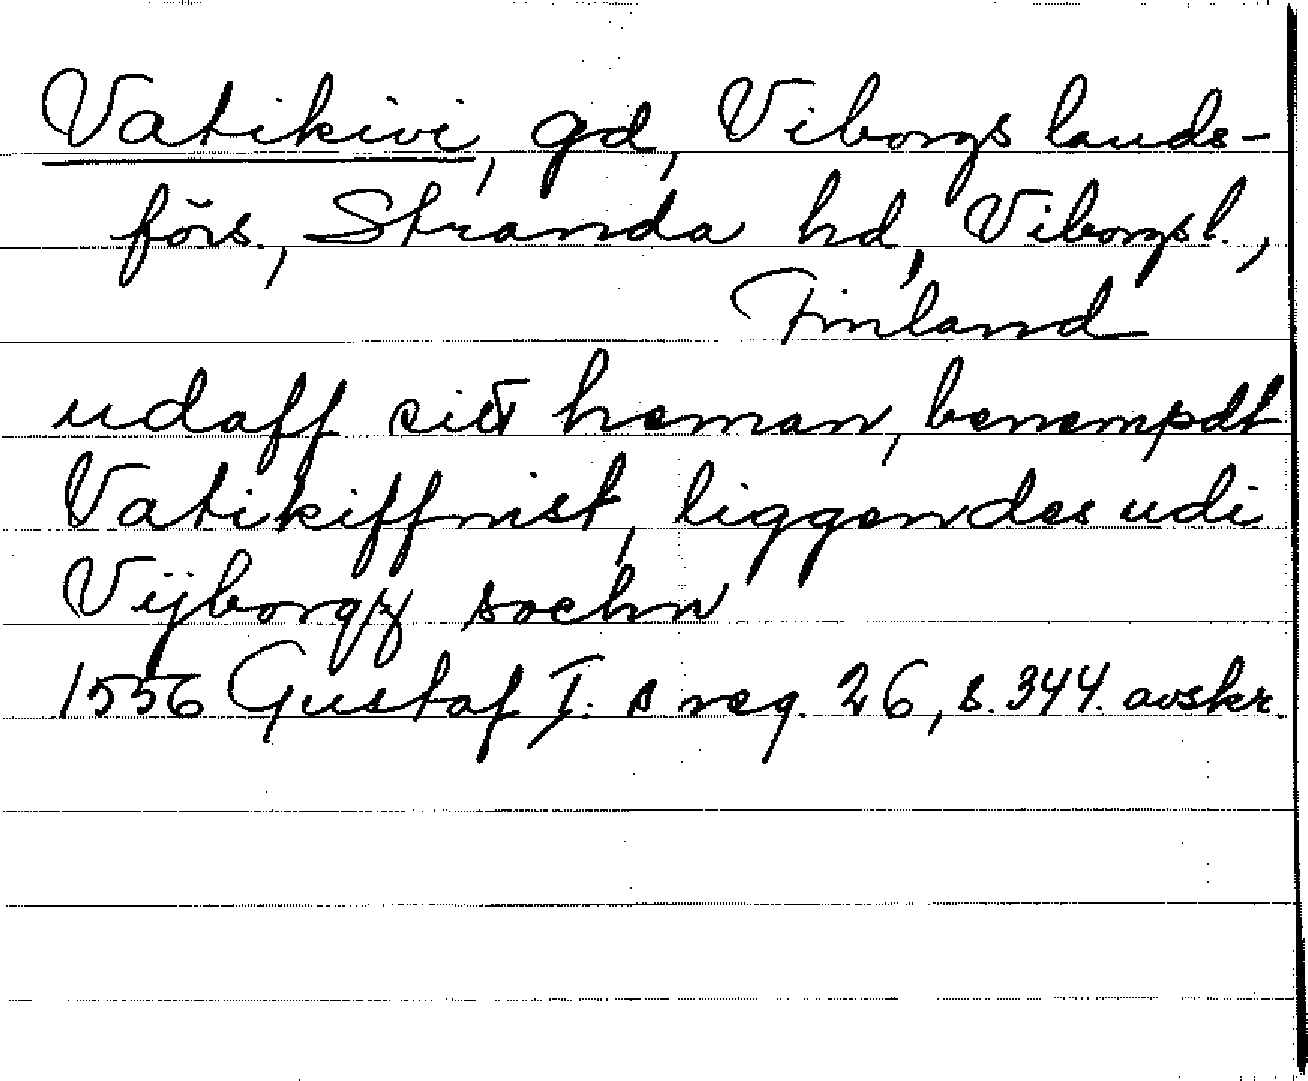 Vatikivi, gd, Viborgs lands-
förs., Stranda hd, Viborgsl.,
Finland
udaff eitt heman, benempdt
Vatikiffnist, liggendes udi
Vijborgz sochn
1556 Gustaf I:s reg. 26, s. 344. avskr.